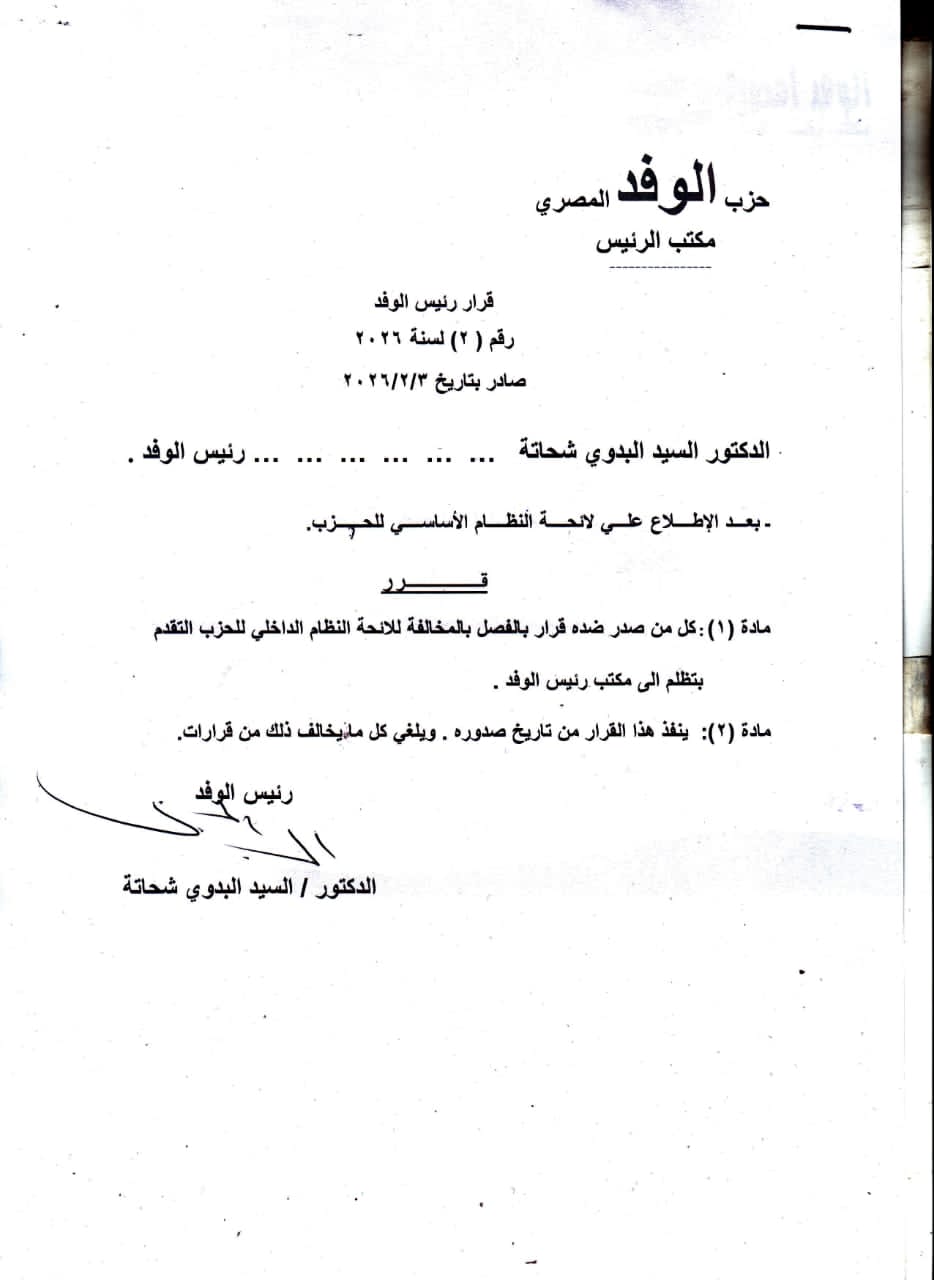 حزب الوفد المصري
مكتب الرئيس
----------------
قرار رئيس الوفد
رقم ( ٢ ) لسنة ٢٠٢٦
صادر بتاريخ ٢٠٢٦/٢/٣
الدكتور السيد البدوي شحاتة ... ... ... ... ... ... رئيس الوفد .
- بعـد الإطـــلاع علـــي لائحـــة النظــام الأساســـي للحـــزب.
قـــــــــرر
مادة (١):كل من صدر ضده قرار بالفصل بالمخالفة للائحة النظام الداخلي للحزب التقدم
بتظلم الى مكتب رئيس الوفد .
مادة (٢): ينفذ هذا القرار من تاريخ صدوره . ويلغي كل ما يخالف ذلك من قرارات.
رئيس الوفد
الدكتور / السيد البدوي شحاتة